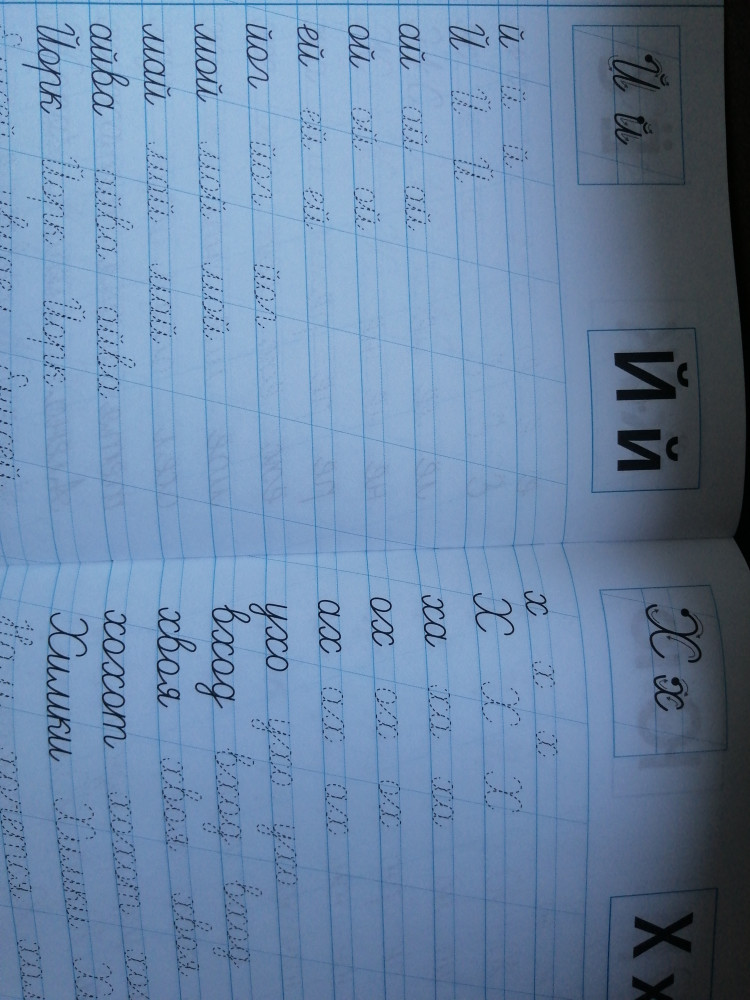 Й й Й й
й й й
Й Й Й
ай ай ай
ой ой ой
ей ей ей
йог йог йог
мой мой мой
май май май
айва айва айва
Йорк Йорк Йорк
Х х Х х
х х х
Х Х Х
ха ха ха
ох ох ох
ах ах ах
ухо ухо ухо
вход вход вход
хвоя хвоя хвоя
хохот хохот
Химки Химки